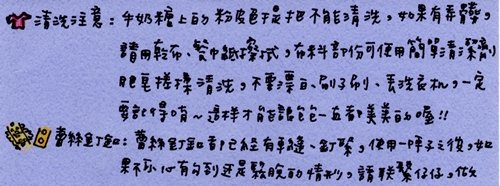 清洗注意：牛奶糖上的粉皮色是把不能清洗，如果有弄髒，
請用乾布、餐巾紙擦拭，布料部份可使用簡單清潔劑
肥皂搓揉清洗，不要漂白、刷子刷、丟洗衣机，一定
要記得唷～這樣才能讓飽一直都美美的喔!!
蕾絲釦釦：蕾絲釦釦都已經有車縫、釘緊，使用一陣子之後，如
果不小心有勾到还是鬆脫的情形，請联繫仔仔，做